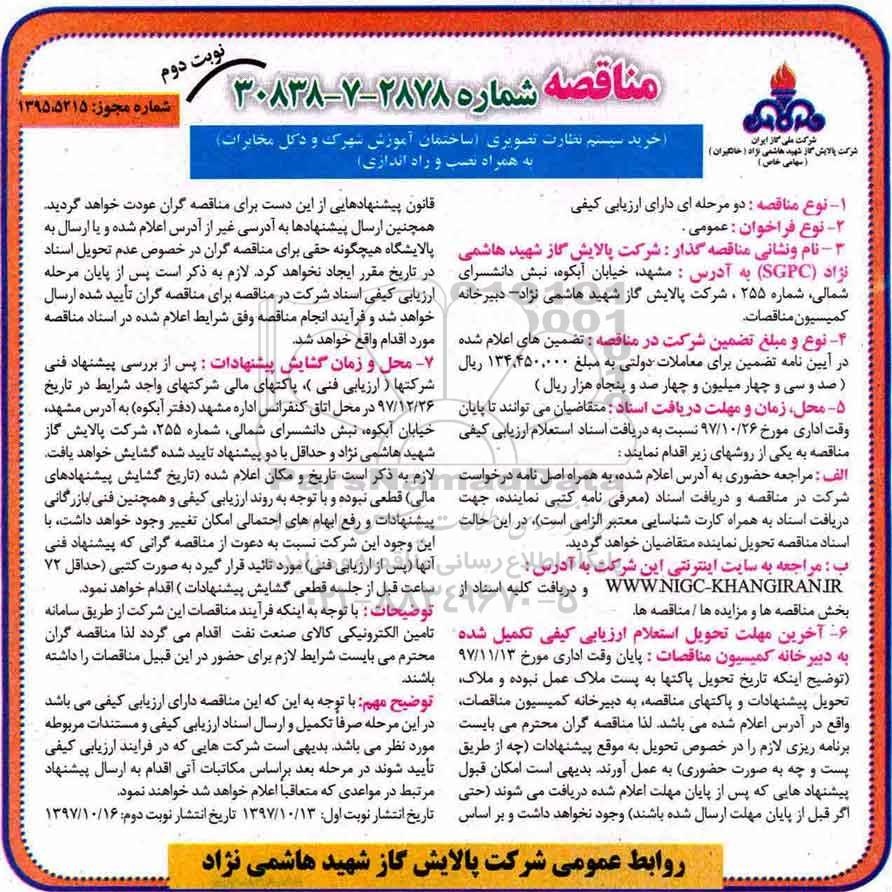 نوبت دوم
مناقصه شماره ۲۸۷۸-۷-۳۰۸۳۸
شماره مجوز: ۱۳۹۵،۵۲۱۵
شرکت ملی گاز ایران
شرکت پالایش گاز شهید هاشمی نژاد (خانگیران)
(سهامی خاص)
(خرید سیستم نظارت تصویری (ساختمان آموزش شهرک و دکل مخابرات)
به همراه نصب و راه اندازی)
۱- نوع مناقصه : دو مرحله ای دارای ارزیابی کیفی
۲- نوع فراخوان : عمومی .
۳- نام ونشانی مناقصه گذار : شرکت پالایش گاز شهید هاشمی
نژاد (SGPC) به آدرس : مشهد، خیابان آبکوه، نبش دانشسرای
شمالی، شماره ۲۵۵ ، شرکت پالایش گاز شهید هاشمی نژاد- دبیرخانه
کمیسیون مناقصات.
۴- نوع و مبلغ تضمین شرکت در مناقصه : تضمین های اعلام شده
در آیین نامه تضمین برای معاملات دولتی به مبلغ ۱۳۴،۴۵۰،۰۰۰ ریال
( صد و سی و چهار میلیون و چهار صد و پنجاه هزار ریال )
۵- محل، زمان و مهلت دریافت اسناد : متقاضیان می توانند تا پایان
وقت اداری مورخ ۹۷/۱۰/۲۶ نسبت به دریافت اسناد استعلام ارزیابی کیفی
مناقصه به یکی از روشهای زیر اقدام نمایند :
الف : مراجعه حضوری به آدرس اعلام شده، به همراه اصل نامه درخواست
شرکت در مناقصه و دریافت اسناد (معرفی نامه کتبی نماینده، جهت
دریافت اسناد به همراه کارت شناسایی معتبر الزامی است)، در این حالت
اسناد مناقصه تحویل نماینده متقاضیان خواهد گردید
ب : مراجعه به سایت اینترنتی این شرکت به آدرس :
WWW.NIGC-KHANGIRAN.IR و دریافت کلیه اسناد از
بخش مناقصه ها و مزایده ها / مناقصه ها.
۶- آخرین مهلت تحویل استعلام ارزیابی کیفی تکمیل شده
به دبیرخانه کمیسیون مناقصات : پایان وقت اداری مورخ ۹۷/۱۱/۱۳
(توضیح اینکه تاریخ تحویل پاکتها به پست ملاک عمل نبوده و ملاک،
تحویل پیشنهادات و پاکتهای مناقصه، به دبیرخانه کمیسیون مناقصات،
واقع در آدرس اعلام شده می باشد. لذا مناقصه گران محترم می بایست
برنامه ریزی لازم را در خصوص تحویل به موقع پیشنهادات (چه از طریق
پست و چه به صورت حضوری) به عمل آورند. بدیهی است امکان قبول
پیشنهاد هایی که پس از پایان مهلت اعلام شده دریافت می شوند (حتی
اگر قبل از پایان مهلت ارسال شده باشند) وجود نخواهد داشت و بر اساس
قانون پیشنهادهایی از این دست برای مناقصه گران عودت خواهد گردید.
همچنین ارسال پیشنهادها به آدرسی غیر از آدرس اعلام شده و یا ارسال به
پالایشگاه هیچگونه حقی برای مناقصه گران در خصوص عدم تحویل اسناد
در تاریخ مقرر ایجاد نخواهد کرد. لازم به ذکر است پس از پایان مرحله
ارزیابی کیفی اسناد شرکت در مناقصه برای مناقصه گران تأیید شده ارسال
خواهد شد و فرآیند انجام مناقصه وفق شرایط اعلام شده در اسناد مناقصه
مورد اقدام واقع خواهد شد.
۷- محل و زمان گشایش پیشنهادات : پس از بررسی پیشنهاد فنی
شرکتها ( ارزیابی فنی )، پاکتهای مالی شرکتهای واجد شرایط در تاریخ
۹۷/۱۲/۲۶ در محل اتاق کنفرانس اداره مشهد (دفتر آبکوه) به آدرس مشهد،
خیابان آبکوه، نبش دانشسرای شمالی، شماره ۲۵۵، شرکت پالایش گاز
شهید هاشمی نژاد و حداقل با دو پیشنهاد تایید شده گشایش خواهد یافت.
لازم به ذکر است تاریخ و مکان اعلام شده (تاریخ گشایش پیشنهادهای
مالی) قطعی نبوده و با توجه به روند ارزیابی کیفی و همچنین فنی/بازرگانی
پیشنهادات و رفع ابهام های احتمالی امکان تغییر وجود خواهد داشت، با
این وجود این شرکت نسبت به دعوت از مناقصه گرانی که پیشنهاد فنی
آنها (پس از ارزیابی فنی) مورد تائید قرار گیرد به صورت کتبی (حداقل ۷۲
ساعت قبل از جلسه قطعی گشایش پیشنهادات ) اقدام خواهد نمود.
توضیحات : با توجه به اینکه فرآیند مناقصات این شرکت از طریق سامانه
تامین الکترونیکی کالای صنعت نفت اقدام می گردد لذا مناقصه گران
محترم می بایست شرایط لازم برای حضور در این قبیل مناقصات را داشته
باشند.
توضیح مهم: با توجه به این که این مناقصه دارای ارزیابی کیفی می باشد
در این مرحله صرفاً تکمیل و ارسال اسناد ارزیابی کیفی و مستندات مربوطه
مورد نظر می باشد. بدیهی است شرکت هایی که در فرایند ارزیابی کیفی
تأیید شوند در مرحله بعد براساس مکاتبات آتی اقدام به ارسال پیشنهاد
مرتبط در مواعدی که متعاقبا اعلام خواهد شد خواهند نمود.
تاریخ انتشار نوبت اول: ۱۳۹۷/۱۰/۱۳ تاریخ انتشار نوبت دوم: ۱۳۹۷/۱۰/۱۶
روابط عمومی شرکت پالایش گاز شهید هاشمی نژاد